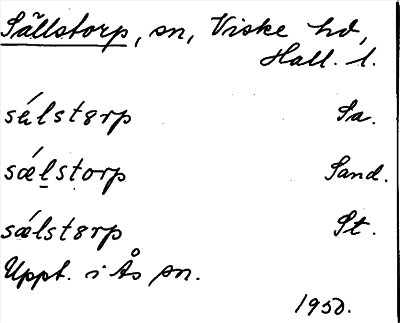 Sällstorp, sn, Viske hd,
Hall. l.
sǽlstɤrp Sa.
sǽlstorp Sand.
sǽlstɤrp St.
Uppt. i Ås sn.
1950.